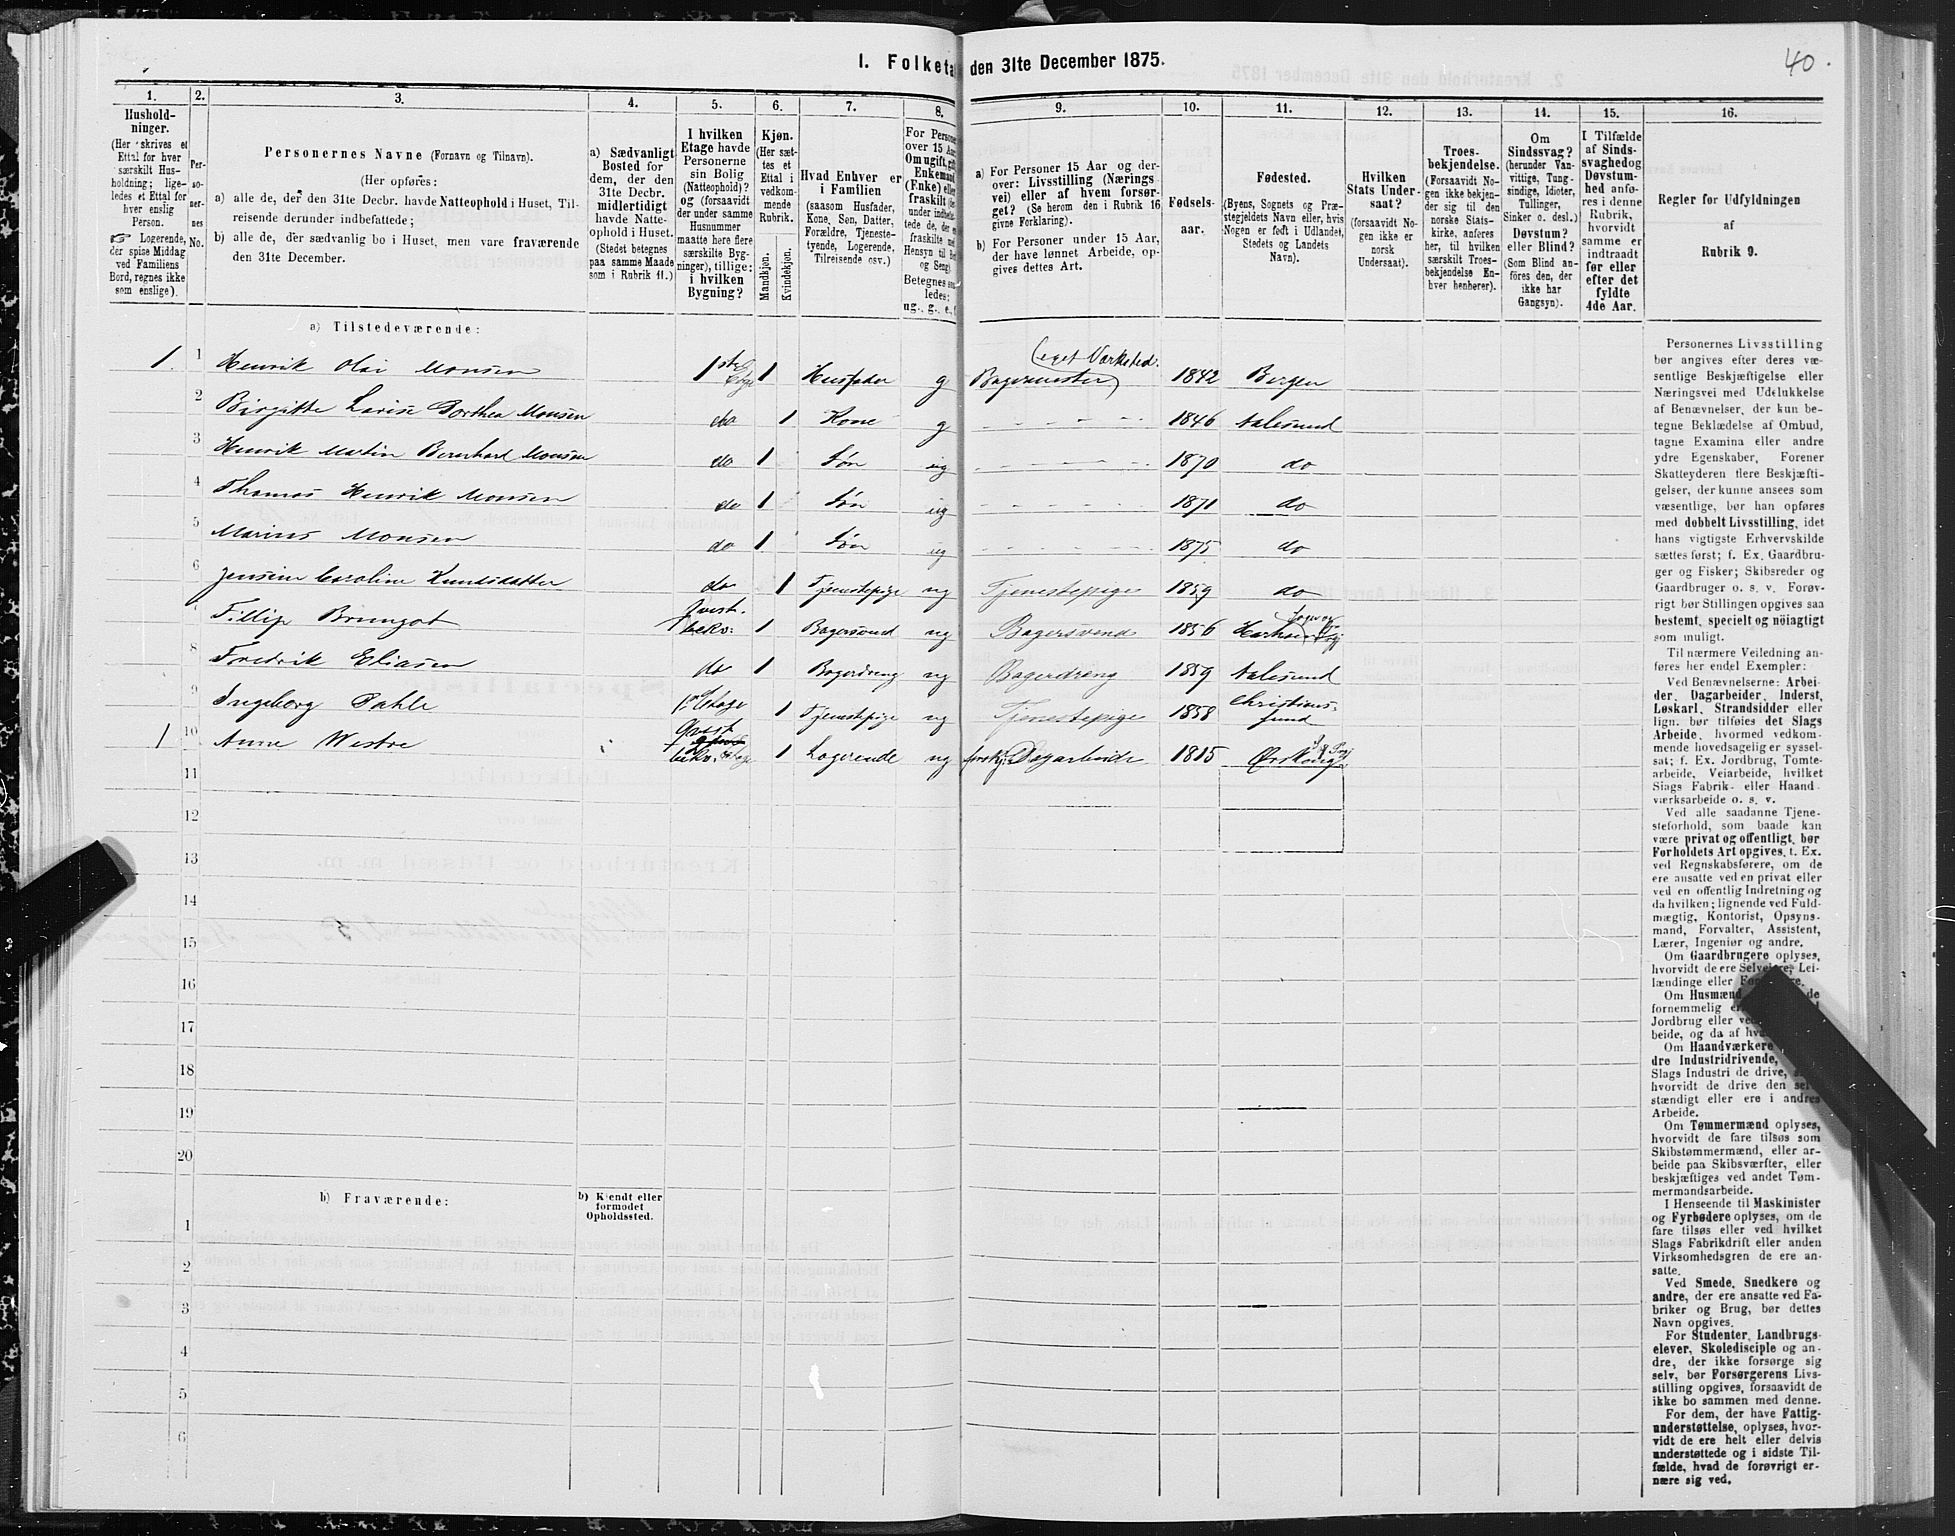 40.
I. Folketæ den 31te December 1875.
1. 2. 3. 4. 5. 6. 7. 8. 9. 10. 11. 12. 13. 14. 15. 16.
Hushold-
ninger.
(Her skrives et
Ettal for hver
særskilt Hus-
holdning; lige-
ledes et Ettal for
hver enslig
Person.
☞ Logerende,
der spise Middag
ved Familiens
Bord, regnes ikke
som enslige).
Per-
so-
ner-
nes
No.
Personernes Navne (Fornavn og Tilnavn).
(Her opføres:
a) alle de, der den 31te Decbr. havde Natteophold i Huset, Til-
reisende derunder indbefattede;
b) alle de, der sædvanlig bo i Huset, men vare fraværende
den 31te December.
a) Sædvanligt
Bosted for
dem, der den
31te Decbr.
midlertidigt
havde Natte-
ophold i Huset.
(Stedet betegnes
paa samme Maade
som i Rubrik 11.)
I hvilken
Etage havde
Personerne
sin Bolig
(Natteophold)?
og (forsaavidt
der under samme
Husnummer
maatte høre flere
særskilte Byg-
ninger), tillige:
i hvilken
Bygning?
Kjøn.
(Her sæt-
tes et
Ettal i
vedkom-
mende
Rubrik.
Mandkjøn.
Kvindekjøn.
Hvad Enhver er
i Familien
(saasom Husfader,
Kone, Søn, Datter,
Forældre, Tjeneste-
tyende, Logerende,
Tilreisende osv.)
For Persone
over 15 Aar
Om ugift, gift
Enkemand
(Enke) eller
fraskilt
under indbe-
tede de, der e
fraskilte
Hensyn til Bo
og Seng)
Betegnes saa
ledes:
ug., g., e., f
a) For Personer 15 Aar og der-
over: Livsstilling (Nærings
vei) eller af hvem forsør-
get? (Se herom den i Rubrik 16
givne Forklaring).
b) For Personer under 15 Aar,
der have lønnet Arbeide, op-
gives dettes Art.
Fødsels-
aar.
Fødested.
(Byens, Sognets og Præ-
stegjeldets Navn eller, hvis
Nogen er født i Udlandet,
Stedets og Landets
Navn).
Hvilken
Stats Under-
saat?
(forsaavidt No-
gen ikke er
norsk
Undersaat).
Troes-
bekjendelse.
(Forsaavidt No-
gen ikke bekjen-
der sig til den
norske Stats-
kirke, anføres
her, til hvilken
særskilt Troes-
bekjendelse En-
hver henhører).
Om
Sindssvag?
(herunder Van-
vittige, Tung-
sindige, Idioter,
Tullinger,
Sinker o. desl.)
Døvstum?
eller Blind?
(Som Blind an-
føres den, der
ikke har
Gangsyn).
I Tilfælde
af Sinds-
svaghed og
Døvstum-
hed anfø-
res i denne
Rubrik,
hvorvidt
samme er
indtraadt
før eller
efter det
fyldte
4de Aar.
Regler for Udfyldningen
af
Rubrik 9.
a) Tilstedeværende:
1. 1 Henrik Olai Monsen 1 ste Etage 1 Husfader g Bagermester (eget Værksted.) 1842 Bergen
2 Birgitte Lovise Dorthea Monsen do 1 Kone g 1846 Aalesund
3 Henrik Martin Bernhard Monsen do 1 Søn ug 1870 do
4 Thomas Henrik Monsen do 1 Søn ug 1871 do
5 Marius Monsen do 1 Søn ug 1875 do
6 Jensine Caroline Knudsdatter do 1 Tjenestepige ug Tjenestepige 1859 do
7 Fillip Brungot Qvist- bekv: 1 Bagersvend ug Bagersvend 1856
8 Fredrik Eliasen do 1 Bagerdreng ug Bagerdreng 1859 Aalesund
9 Ingeborg Dahle Etage 1 Tjenestepige ug Tjenestepige 1858 Christians-
sund
1 10 Anne Westre Qvist bekv. 1 Logerende ug Dagarbeide 1815 Ørskoug
11
12
13
14
15
16
17
18
19
20
b) Fraværende:
b) Kjendt eller
formodet
Opholdssted.
1
2
3
4
5
6
Personernes Livsstilling
bør angives efter deres væ-
sentlige Beskjæftigelse eller
Næringsvei med Udelukkelse
af Benævnelser, der kun be-
tegne Beklædelse af Ombud,
tagne Examina eller andre
ydre Egenskaber, Forener
Skatteyderen flere Beskjæfti-
gelser, der kunne ansees som
væsentlige, bør han opføres
med dobbelt Livsstilling, idet
hans vigtigste Erhvervskilde
sættes først; f. Ex. Gaardbru-
ger og Fisker; Skibsreder og
Gaardbruger o. s. v. Forøv-
rigt bør Stillingen opgives saa
bestemt, specielt og nøiagtigt
som muligt.
Til nærmere Veiledning an-
føres her endel Exempler:
Ved Benævnelserne: Arbei-
der, Dagarbeider, Inderst,
Løskarl, Strandsidder eller
lign. bør tilføies det Slags
Arbeide, hvormed vedkom-
mende hovedsagelig er syssel-
sat; f. Ex. Jordbrug, Tomte-
arbeide, Veiarbeide, hvilket
Slags Fabrik- eller Haand-
værksarbeide o. s. v.
Ved alle saadanne Tjene-
steforhold, som baade kan
være privat og offentligt, bør
Forholdets Art opgives, t. Ex.
ved Regnskabsførere, om de
ere ansatte ved en privat eller
ved en offentlig Indretning og
da hvilken; lignende ved Fuld-
mægtig, Kontorist, Opsyns-
mand, Forvalter, Assistent,
Lærer, Ingeniør og andre.
Om Gaardbrugere oplyses,
hvorvidt de ere Selveiere, Lei-
lændinge eller
Om Husmænd de
fornemmelig
Jordbrug eller ve
beide, og da af
Om Haandværkere
dre Industridrivende,
Slags Industri de drive,
hvorvidt de drive den selv
stændigt eller ere i andres
Arbeide.
Om Tømmermænd oplyses,
hvorvidt de fare tilsøs som
Skibstømmermænd, eller ar-
beide paa Skibsværfter, eller
beskjæftiges ved andet Tøm-
mermandsarbeide.
I Henseende til Maskinister
og Fyrbødere oplyses, om de
fare tilsøs eller ved hvilket
Slags Fabrikdrift eller anden
Virksomhedsgren de ere an-
satte.
Ved Smede, Snedkere og
andre, der ere ansatte ved Fa-
briker og Brug, bør dettes
Navn opgives.
For Studenter, Landbrugs-
elever, Skoledisciple og an-
dre, der ikke forsørge sig
selv, bør Forsørgerens Livs-
stilling opgives, forsaavidt de
ikke bo sammen med denne.
For dem, der have Fattig-
understøttelse, oplyses, hvor-
vidt de ere helt eller delvis
understøttede og i sidste Til-
fælde, hvad de forøvrigt er-
nære sig ved.